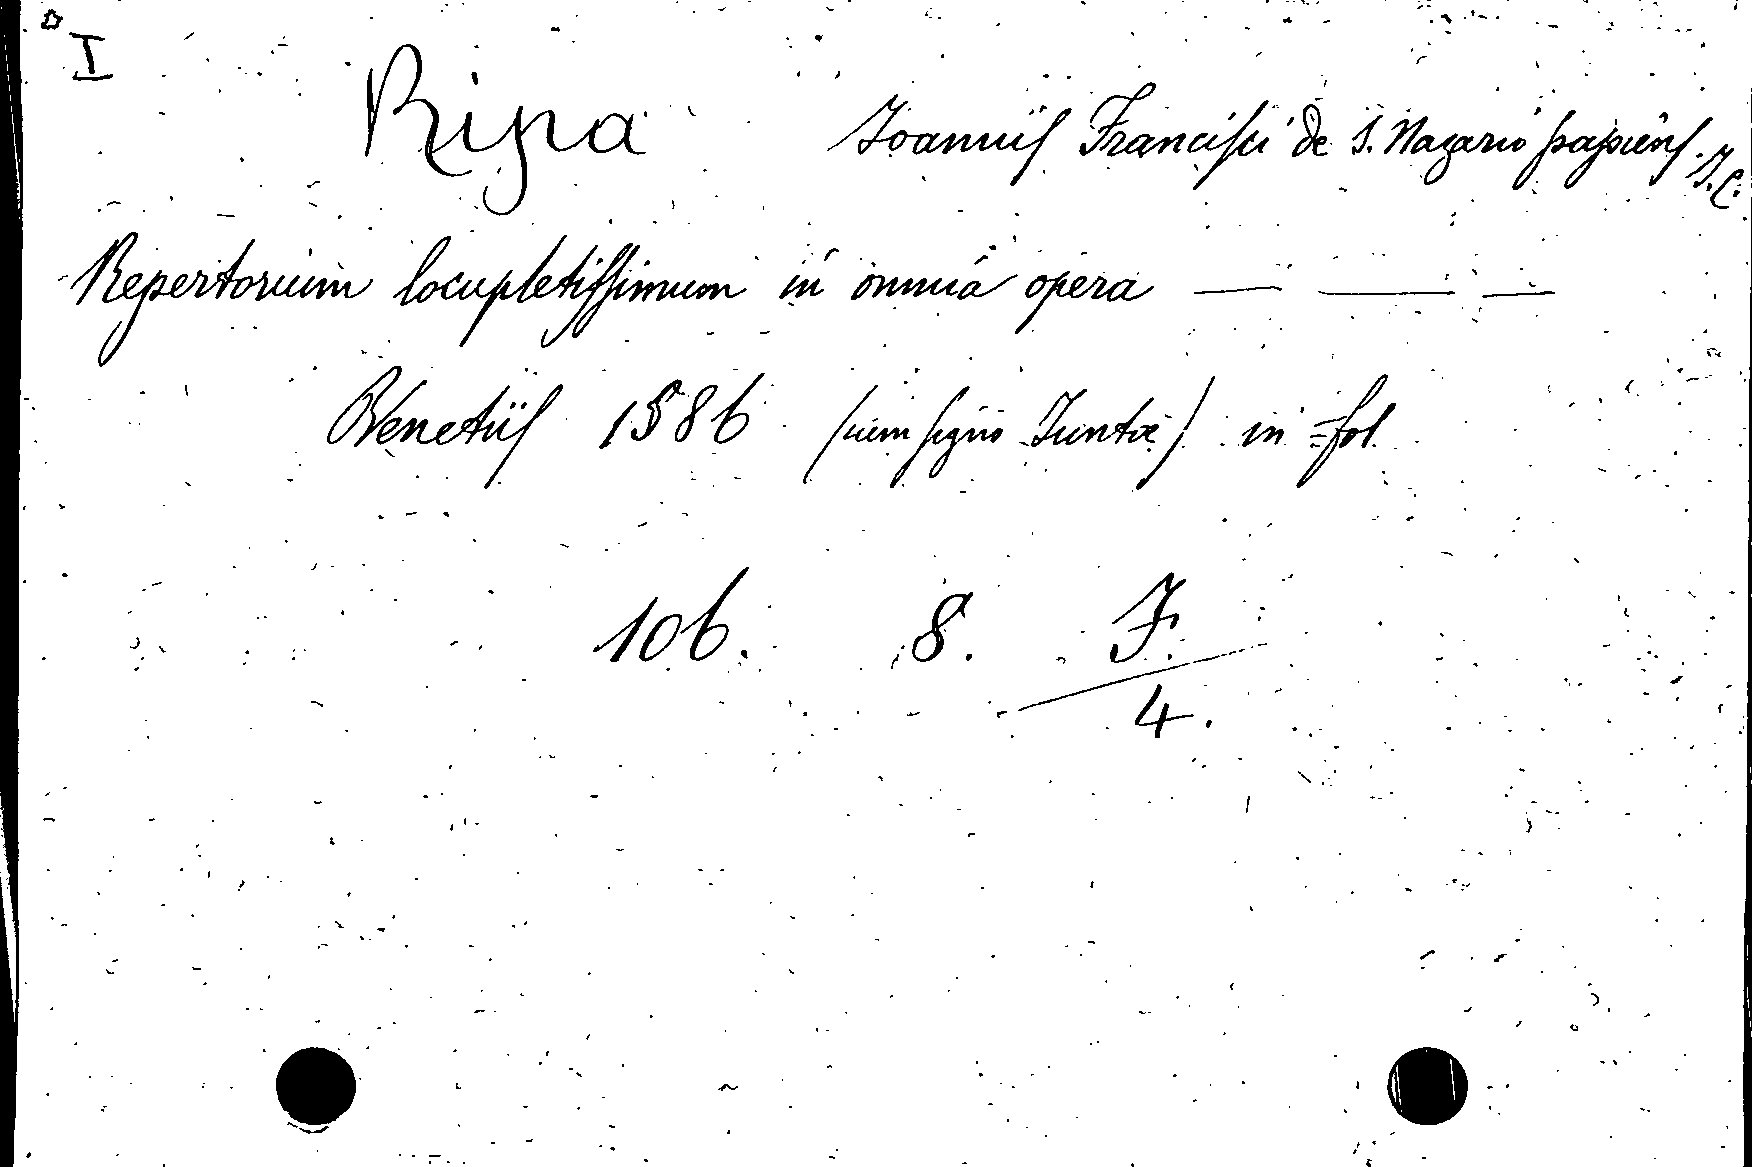 I
Ripa Joannis Francisci de S. Nazario papiens. J.C.
Repertorium locupletissimum in omnia opera — — —
Venetiis 1586 (cum signo Juntae) in fol.
106. 8. F.
4.